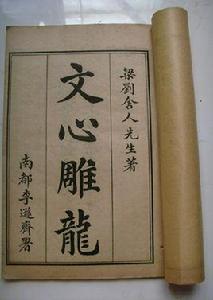 梁劉舍人先生著
文心雕龍
南都李遜齋署